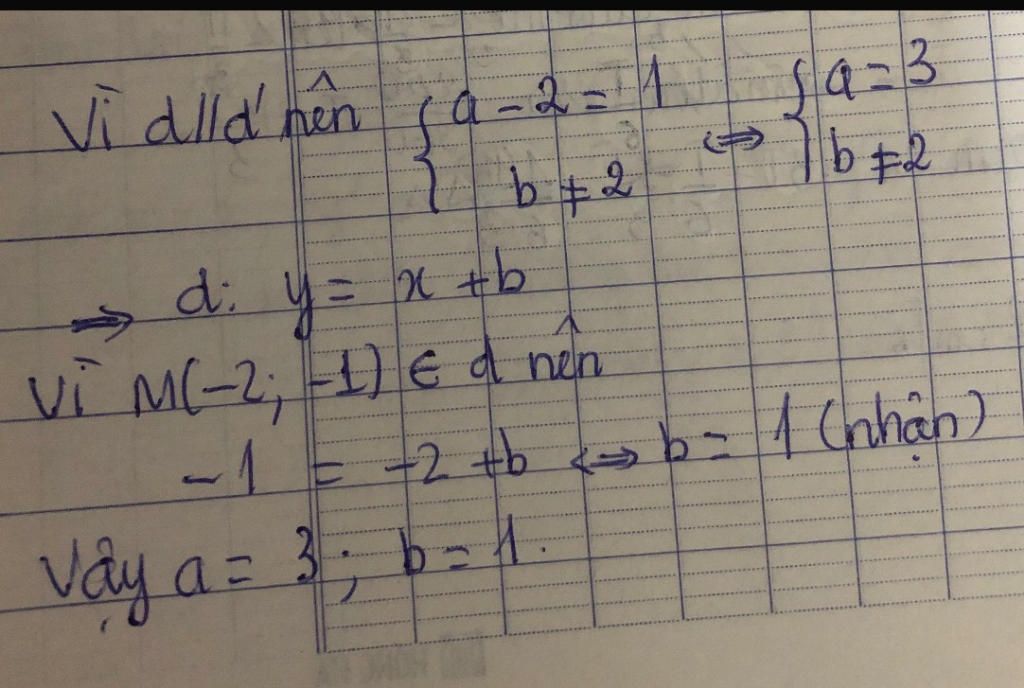 Vì d//d' nên { a - 2 = 1 ⇔ { a = 3
b ≠ 2 b ≠ 2
⇒ d: y = x + b
Vì M(-2; -1) ∈ d nên
-1 = -2 + b ⇔ b = 1 (nhận)
Vậy a = 3; b = 1.